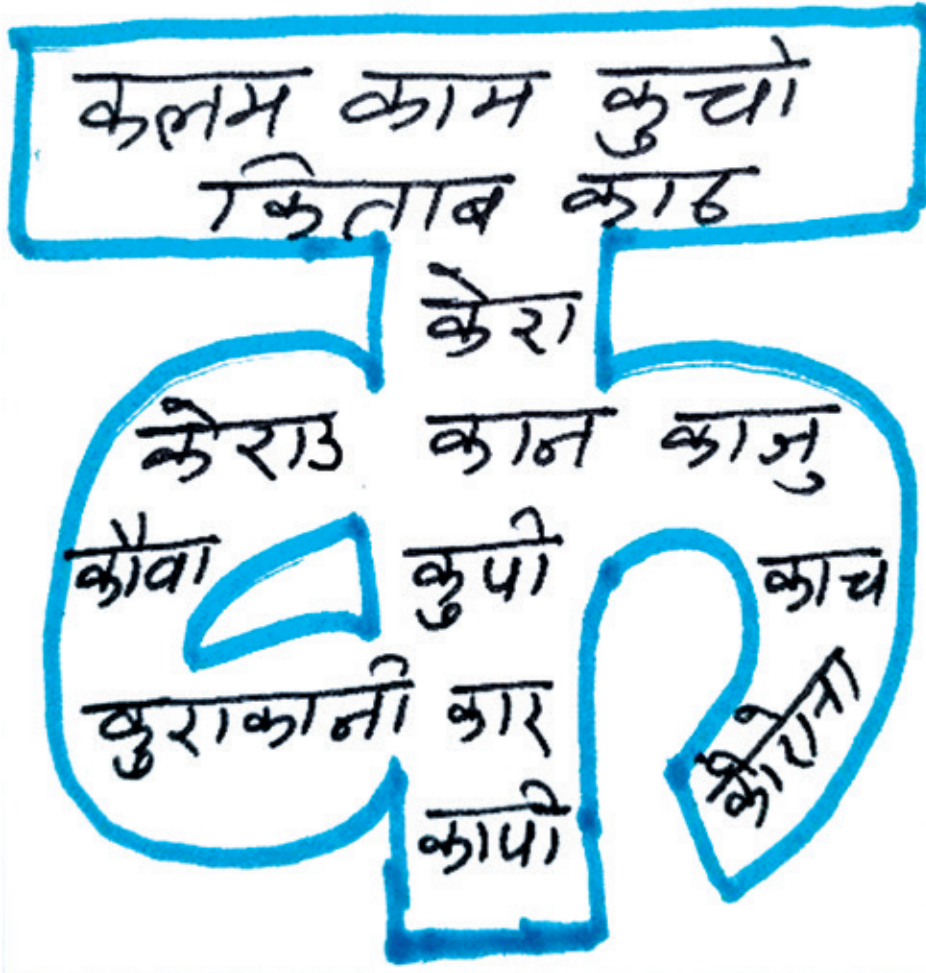 कलम काम कुचो
किताब काठ
केरा
केराउ कान काजु
कौवा कुपी काच
कुराकानी कार
कोरोना
कापी